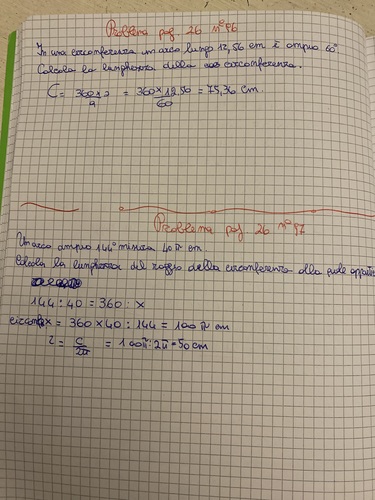 Problema pag 26 n°86
In una circonferenza un arco lungo 12,56 cm è ampio 60°
Calcola la lunghezza della circonferenza.
C = 360×l / α = 360×12,56 / 60 = 75,36 cm.
Problema pag 26 n°87
Un arco ampio 144° misura 40 π cm.
Calcola la lunghezza del raggio della circonferenza alla quale appartiene
144 : 40 = 360 : x
circonf x = 360 × 40 : 144 = 100 π cm
r = C / 2π = 100π : 2π = 50 cm